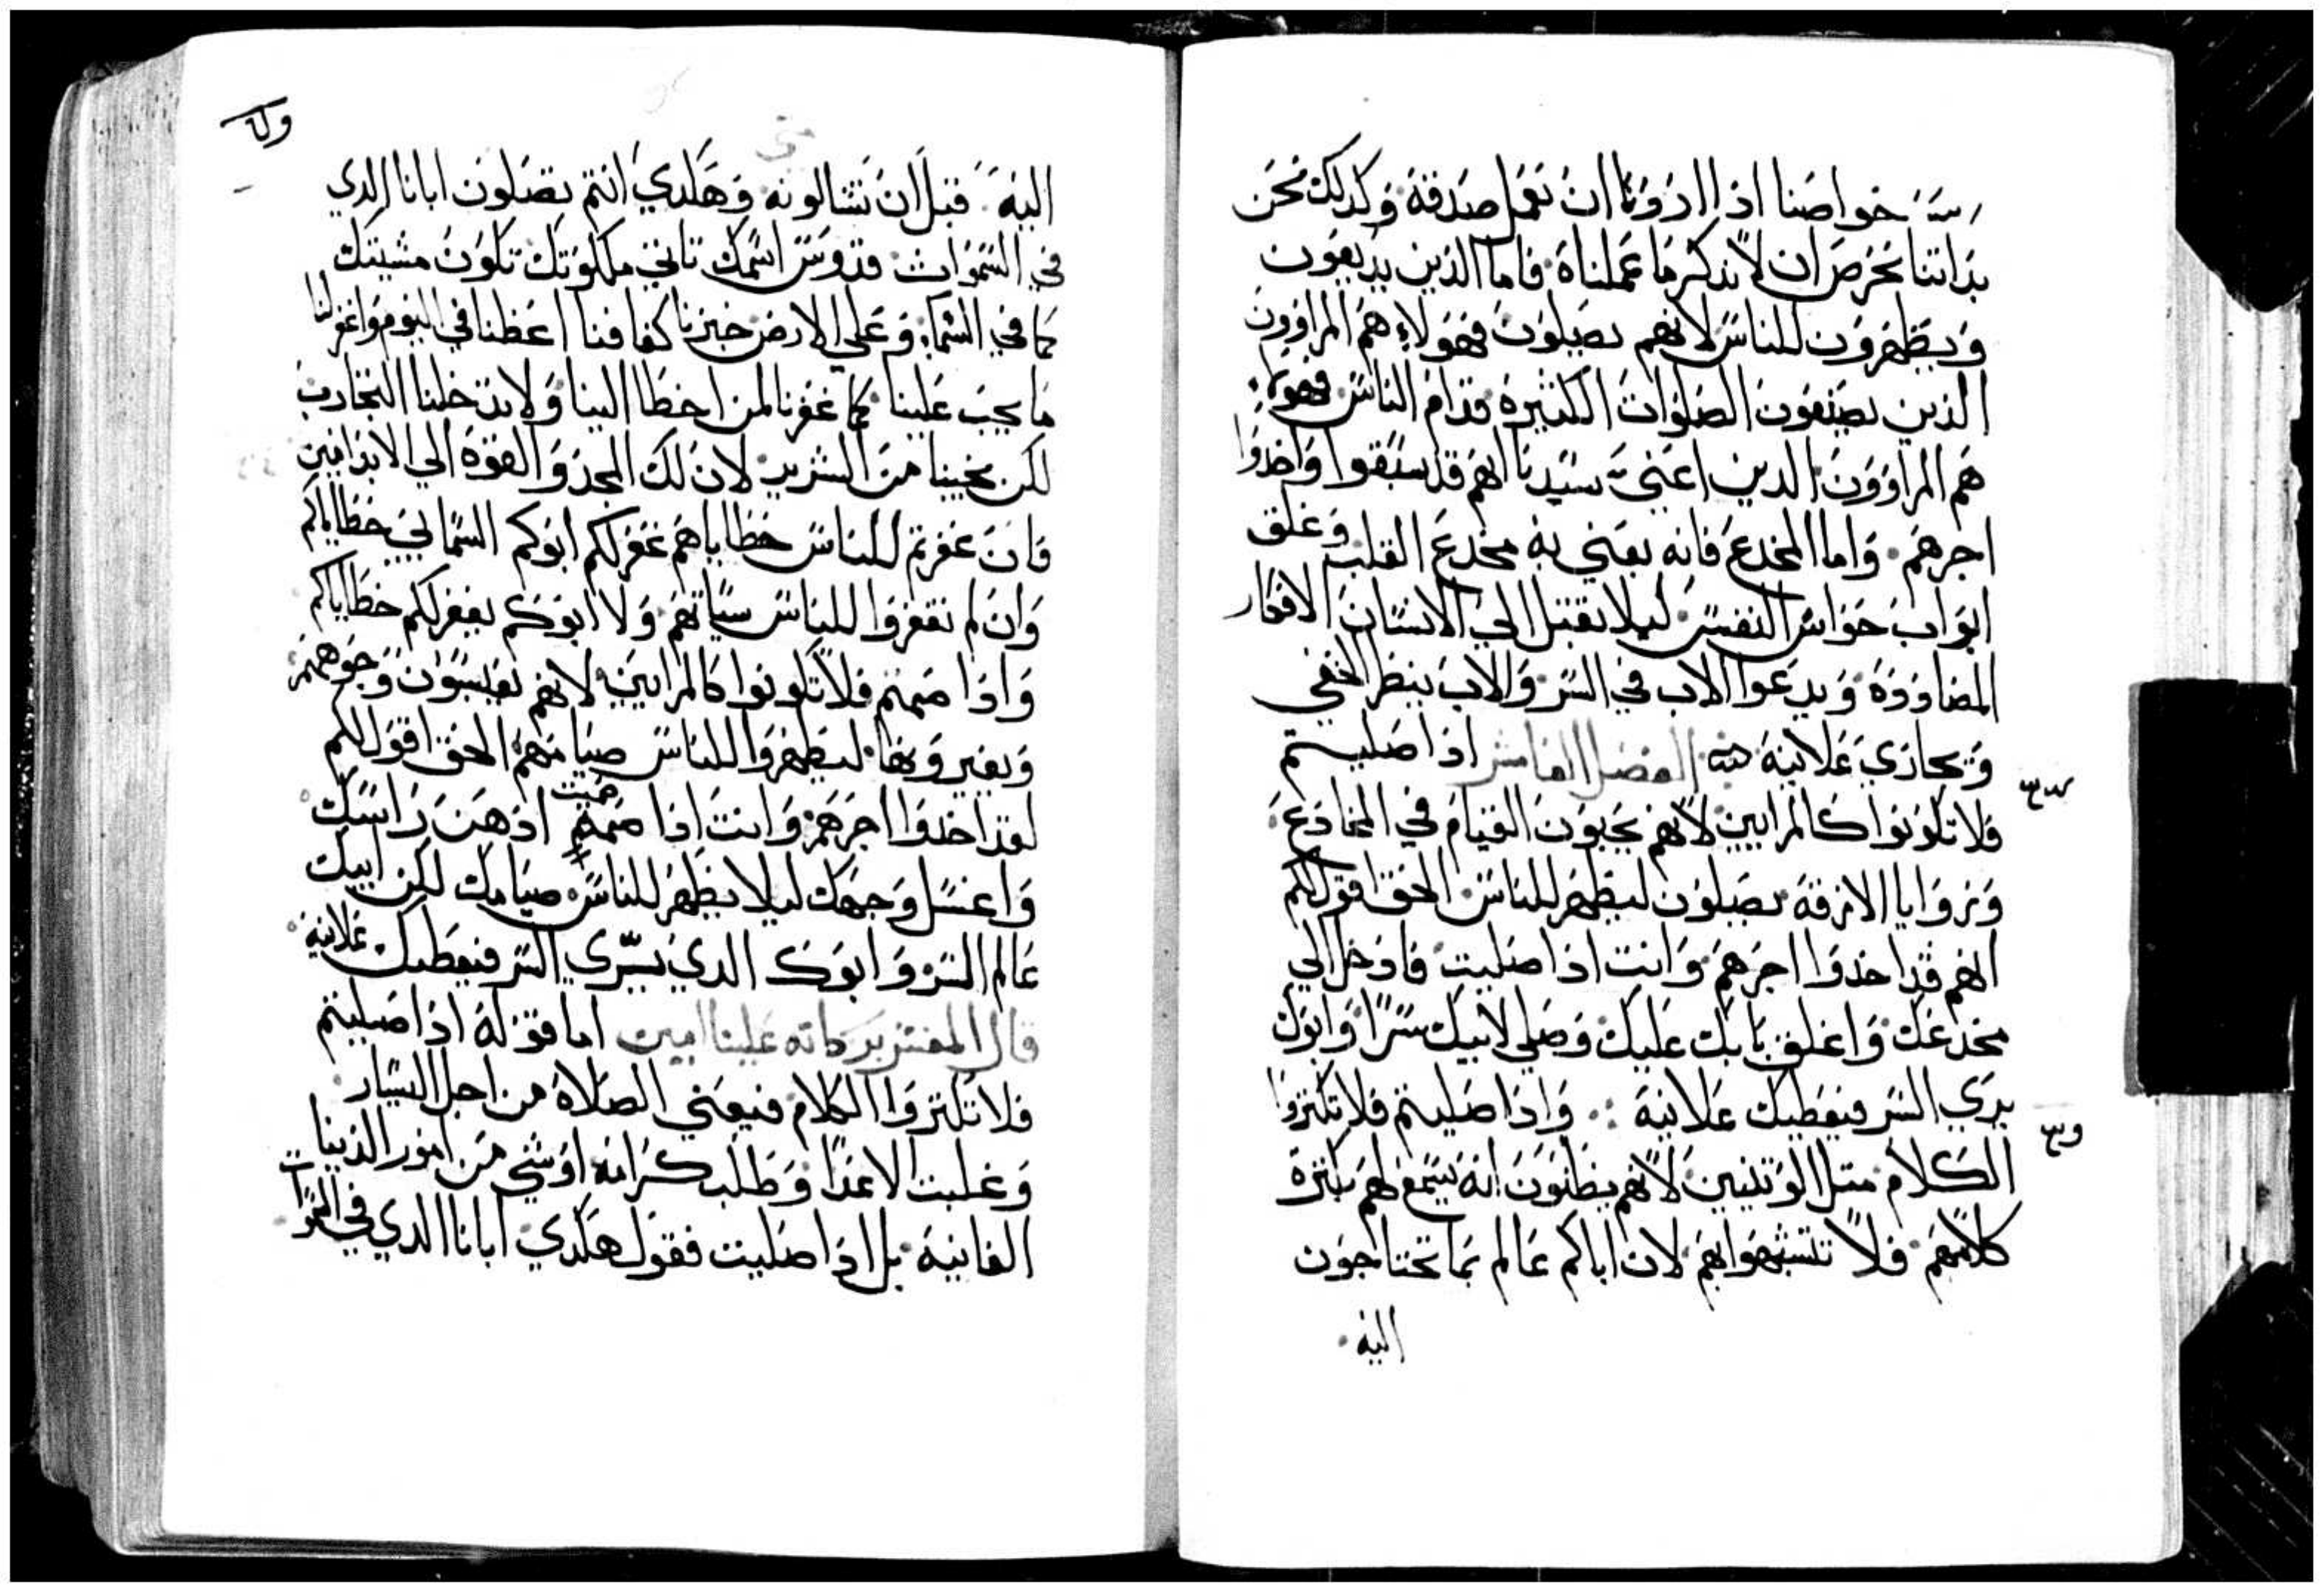 خواصنا اذا اردونا ان نعمل صدقة وكدلك نحن
بداتنا نحرص ان لا ندكر ما عملناه فاما الذين يديعون
ويظهرون للناس لانهم يصلون فهولاء هم المراوون
الذين يصنعون الصلوات الكثيرة قدام الناس فهولاء
هم المراوون الدين اعني سيدنا انهم قد سبقوا واخدوا
اجرهم. واما المخدع فانه يعني به مخدع القلب وغلق
ابواب حواس النفس ليلا تقبل الي الانسان الافكار
المضاودة ويدعوا الاب في السر والاب ينظر الخفي
ويجازي علانية الفصل الخامس اذا صليتم
فلا تكونوا كالمرايين لانهم يحبون القيام في المخادع
وزوايا الازقة يصلون ليظهر للناس الحق اقول لكم
انهم قد اخدوا اجرهم وانت اذا صليت فادخل الي
مخدعك واغلق بابك عليك وصلي لابيك سرا وابوك
يري السر فيعطيك علانية ∴ واذا صليتم فلا تكتروا
الكلام متل الوتنيين لانهم يظنون انه يسمع لهم بكترة
كلامهم فلا تتشبهوا بهم لان اباكم عالم بما تحتاجون
اليه
اليه قبل ان تسالونه وهكدي انتم تصلون ابانا الدي
في السموات قدوس اسمك تاتي ملكوتك تكون مشيتك
كما في السماء وعلي الارض خبزنا كفافنا اعطنا في اليوم واغفر لنا
ما يجب علينا كما غفرنا لمن اخطا الينا ولا تدخلنا التجارب
لكن نجينا من الشرير لان لك المجد والقوة الي الابد امين
فان غفرتم للناس خطاياهم غفر لكم ابوكم السمايي خطاياكم
وان لم تغفروا للناس سياتهم ولا ابوكم يغفر لكم خطاياكم
واذا صمتم فلا تكونوا كالمرايين لانهم يعبسون وجوههم
ويغيرونها ليظهروا للناس صيامهم الحق اقول لكم
لقد اخدوا اجرهم وانت اذا صمت ادهن راسك
واغسل وجهك ليلا يظهر للناس صيامك لكن ابيك
عالم السر وابوك الدي يري السر فيعطيك علانية
قال المفسر بركاته علينا امين اما قوله اذا صليتم
فلا تكتروا الكلام فيعني الصلاة من اجل اليسار
وغلبت الاعدا وطلب كرامة او شي من امور الدنيا
الفانية بل اذا صليت فقول هكدي ابانا الدي في السموات